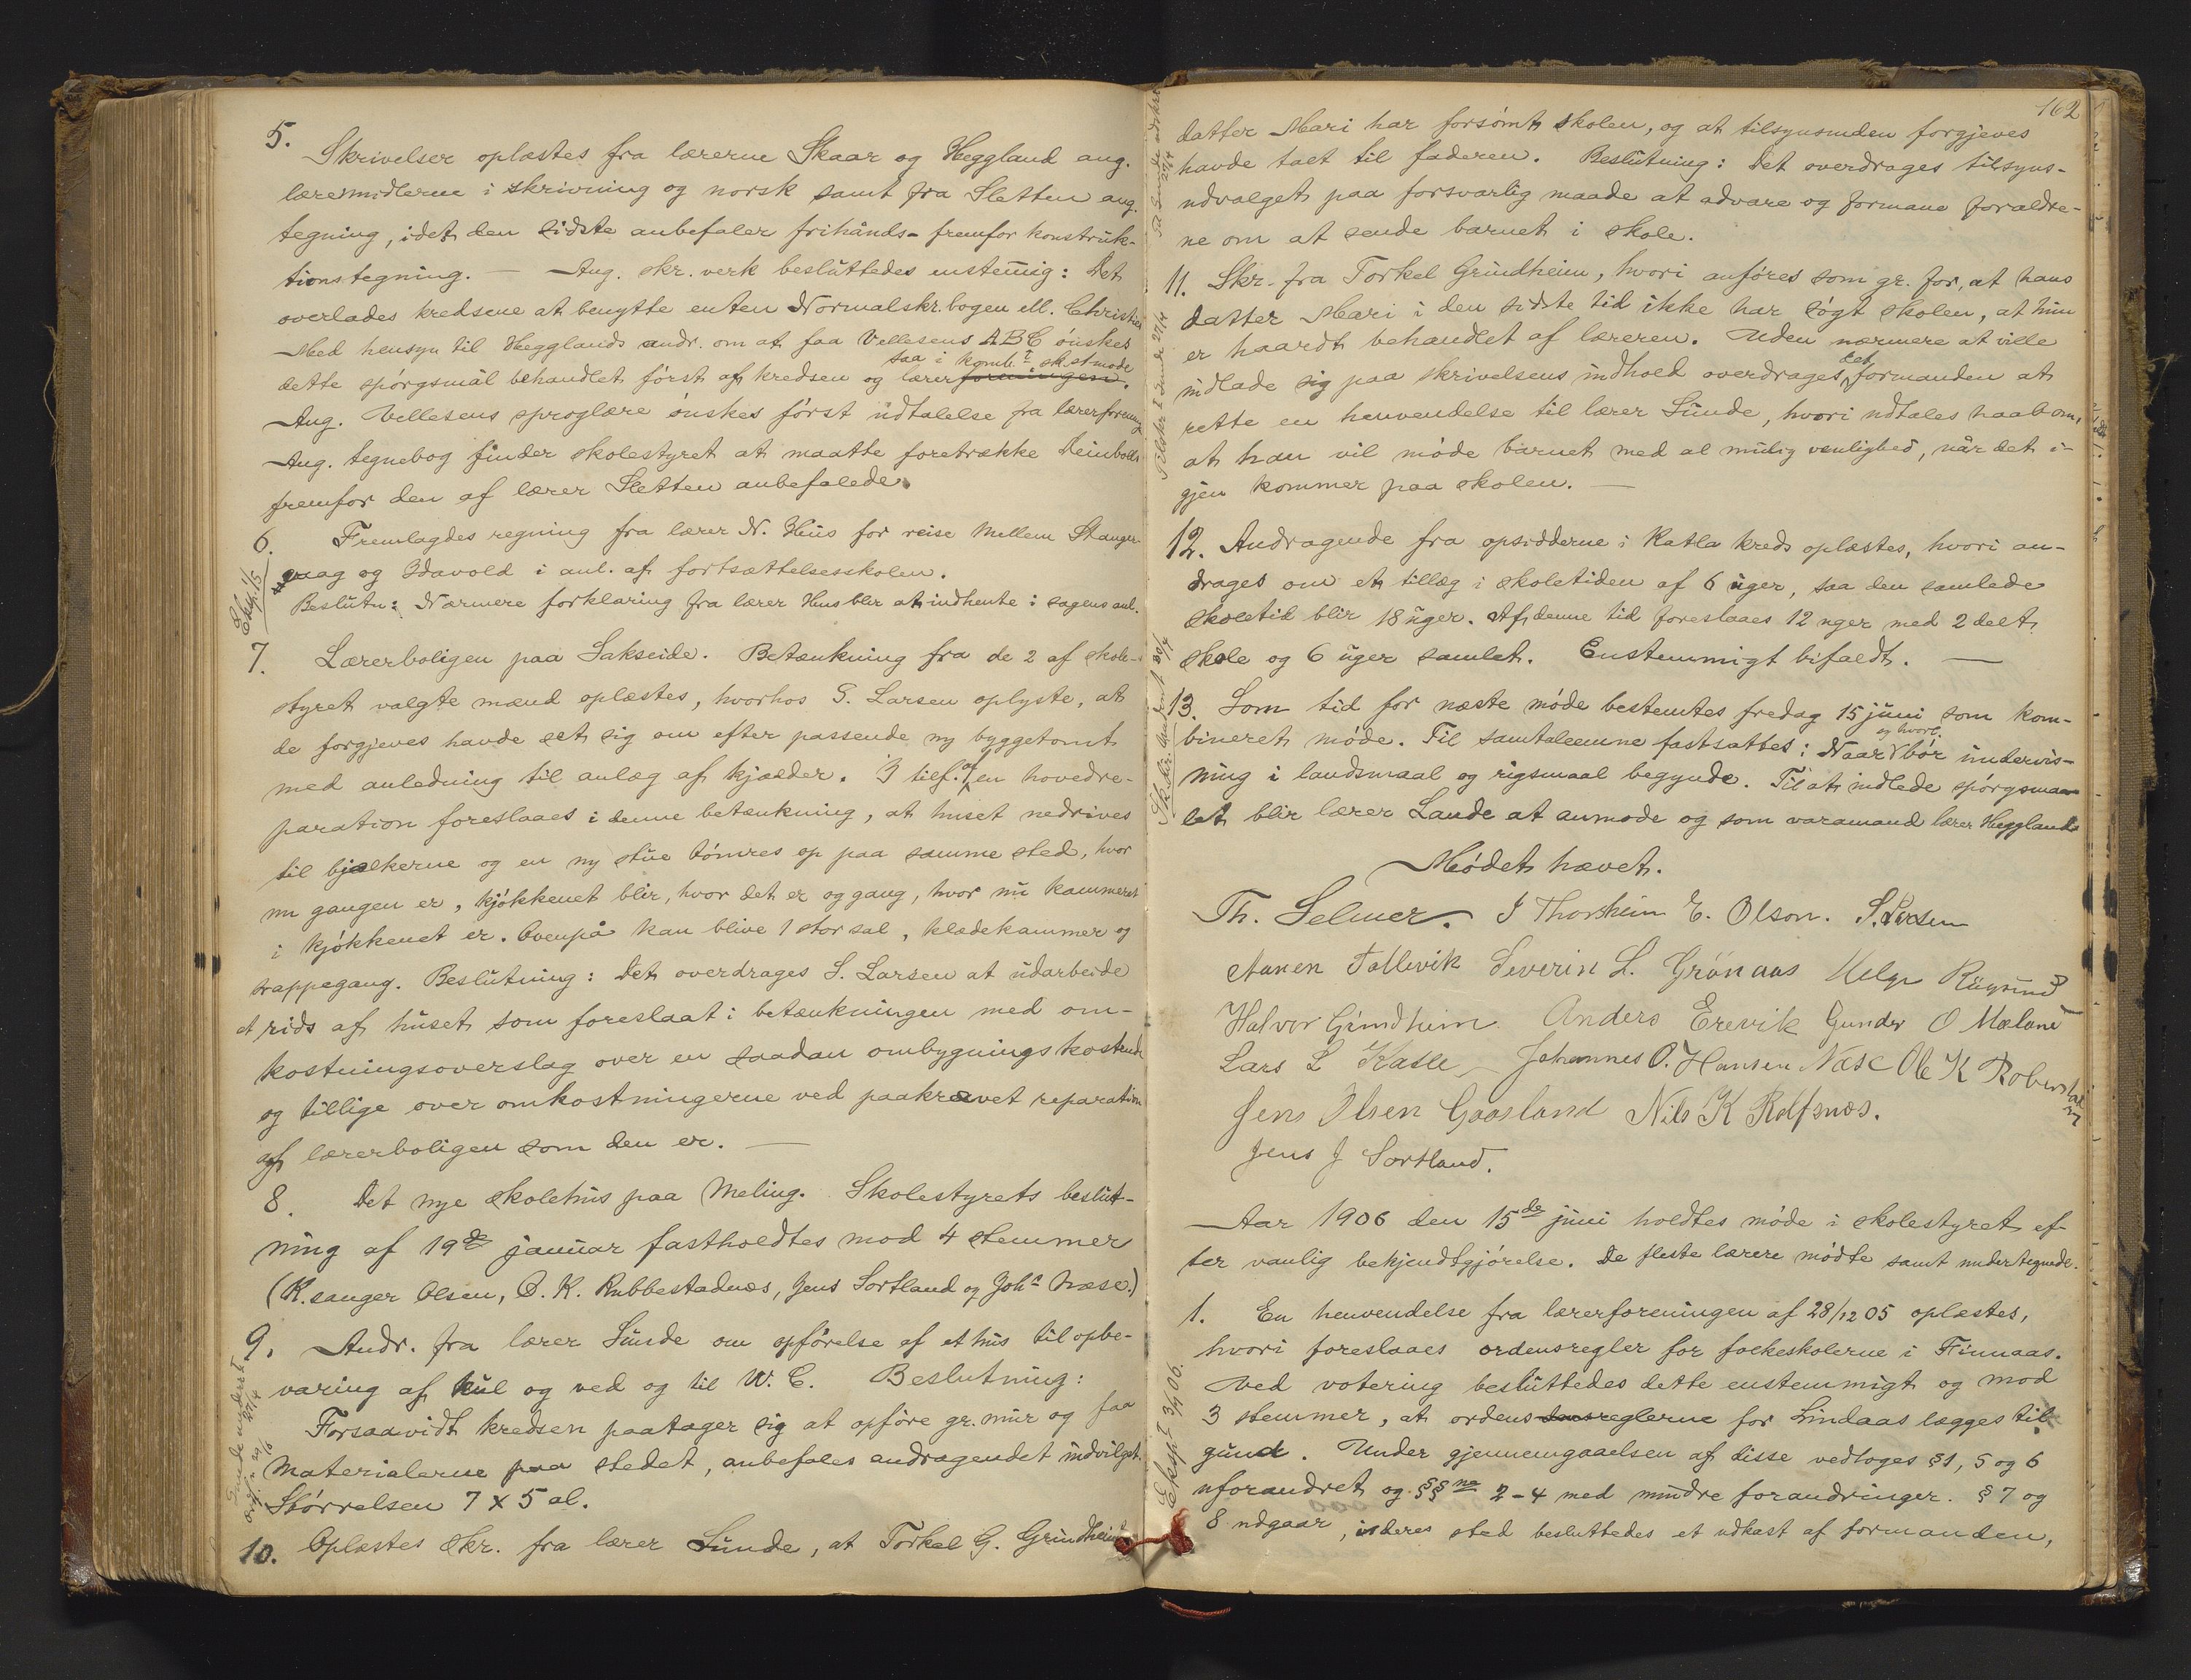 5.
Skrivelser oplæstes fra lærerne Skaar og Heggland ang.
læremidlerne i skrivning og norsk samt fra Sletten ang.
tegning, idet den sidste anbefaler frihånds- fremfor konstruk-
tionstegning. — Ang. skr. verk besluttedes enstemig: Det
overlades kredsene at benytte enten Normalskr.bogen ell. Christies
Med hensyn til Hegglands andr. om at faa Vellesens ABC ønskes
saa i komb.t sk.st.møde
dette spørgsmål behandlet først af kredsen og lærerforeningen.
Ang. Vellesens sproglære ønskes først udtalelse fra lærerforening
Ang. tegnebog finder skolestyret at maatte foretrække Deinbolls
fremfor den af lærer Sletten anbefalede.
6. Fremlagdes regning fra lærer N. Hus for reise mellem Stanger-
vaag og Idavold i anl. af fortsættelsesskolen.
Beslutn: Nærmere forklaring fra lærer Hus blir at indhente i sagens anl.
Eksp. 1/5
7. Lærerboligen paa Sakseide. Betænkning fra de 2 af skole-
styret valgte mænd oplæstes, hvorhos S. Larsen oplyste, at
de forgjeves havde set sig om efter passende ny byggetomt
med anledning til anlæg af kjælder. I tilf. af en hovedre-
paration foreslaaes i denne betænkning, at huset nedrives
til bjælkerne og en ny stue tømres op paa samme sted, hvor
nu gangen er, kjøkkenet blir, hvor det er og gang, hvor nu kammeret
i kjøkkenet er. Ovenpå kan blive 1 stor sal, klædekammer og
trappegang. Beslutning: Det overdrages S. Larsen at udarbeide
et rids af huset som foreslaat i betænkningen med om-
kostningsoverslag over en saadan ombygnings kostende
og tillige over omkostningerne ved paakrævet reparation
af lærerboligen som den er. —
8. Det nye skolehus paa Meling. Skolestyrets beslut-
ning af 19de januar fastholdtes mod 4 stemmer
(K.sanger Olsen, O. K. Rubbestadnæs, Jens Sortland og Johs Næse.)
9. Andr. fra lærer Sunde om opførelse af et hus til opbe-
varing af kul og ved og til W. C. Beslutning:
Forsaavidt kredsen paatager sig at opføre gr.mur og faa
materialerne paa stedet, anbefales andragendet indvilget.
Størrelsen 7 x 5 al.
Sunde underret 27/4
10. Oplæstes skr. fra lærer Sunde, at Torkel G. Grindheims
162
datter Mari har forsømt skolen, og at tilsynsmden forgjeves
havde talt til faderen. Beslutning: Det overdrages tilsyns-
udvalget paa forsvarlig maade at advare og formane forældre-
ne om at sende barnet i skole.
11. Skr. fra Torkel Grindheim, hvori anføres som gr. for, at hans
datter Mari i den sidste tid ikke har søgt skolen, at hun
er haardt behandlet af læreren. Uden nærmere at ville
indlade sig paa skrivelsens indhold overdrages det formanden at
rette en henvendelse til lærer Sunde, hvori udtales haab om,
at han vil møde barnet med al mulig venlighed, når det i-
gjen kommer paa skolen. —
12. Andragende fra opsidderne i Katla kreds oplæstes, hvori an-
drages om et tillæg i skoletiden af 6 uger, saa den samlede
skoletid blir 18 uger. Af denne tid foreslaaes 12 uger med 2 delt
skole og 6 uger samlet. Enstemmigt bifaldt. —
13. Som tid for næste møde bestemtes fredag 15 juni som kom-
bineret møde. Til samtaleemne fastsattes: Naar og hvorl. bør undervis-
ning i landsmaal og rigsmaal begynde. Til at indlede spørgsmaa-
let blir lærer Lande at anmode og som varamand lærer Heggland
Mødet hævet.
Th. Selmer. I Thorsheim E. Olson. S. Larsen
Aanen Tollevik Severin L. Grönaas Helge
Halvor Grindheim Anders Erevik Gunder O Mæland
Lars L Katle Johannes O. Hansen Næse Ole K Robberstad
Jens Olsen Gaasland Nils K Rolfsnæs.
Jens J Sortland.
Aar 1906 den 15de juni holdtes møde i skolestyret ef-
ter vanlig bekjendtgjørelse. De fleste lærere mødte samt undertegnede.
1. En henvendelse fra lærerforeningen af 28/12 05 oplæstes,
hvori foreslaaes ordensregler for folkeskolerne i Finnaas.
Ved votering besluttedes dette enstemmigt og mod
3 stemmer, at ordensreglerne for Lindaas lægges til
grund. Under gjennemgaaelsen af disse vedtoges §1, 5 og 6
uforandret og §§ne 2-4 med mindre forandringer. § 7 og
8 udgaar, i deres sted besluttedes et udkast af formanden,
Ekspt 3/7 06.